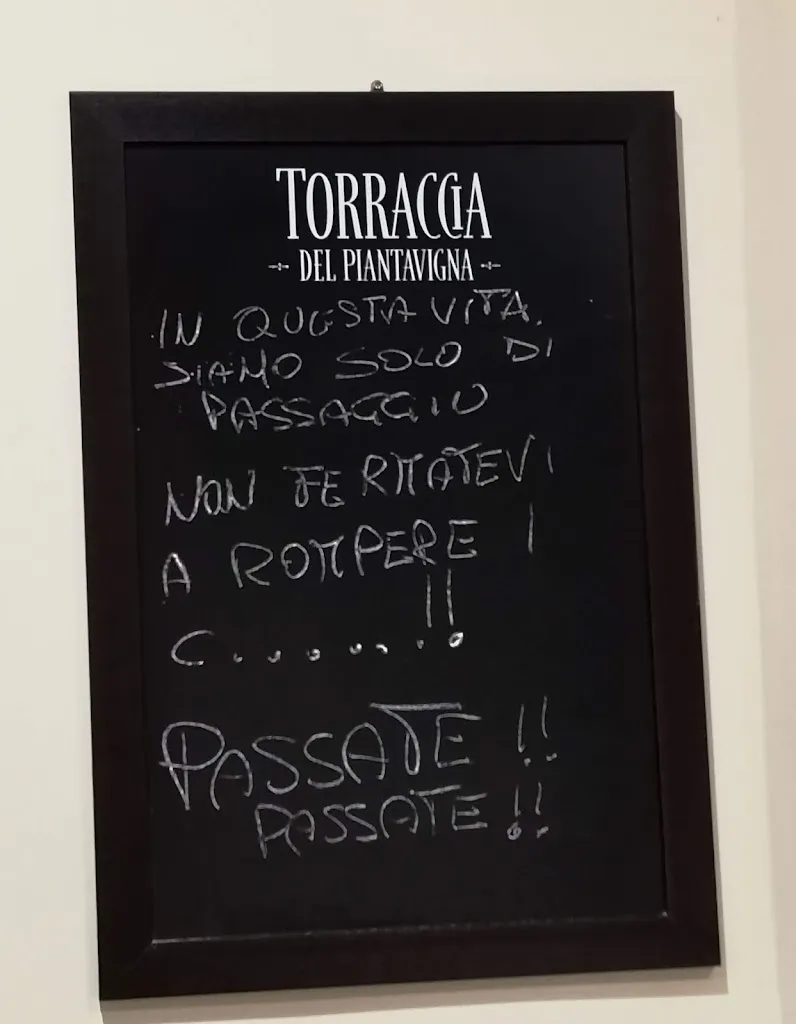 TORRACCIA
DEL PIANTAVIGNA
IN QUESTA VITA.
SIAMO SOLO DI
PASSAGGIO
NON FERMATEVI
A ROMPERE !
C.......!!
PASSATE !!
PASSATE !!